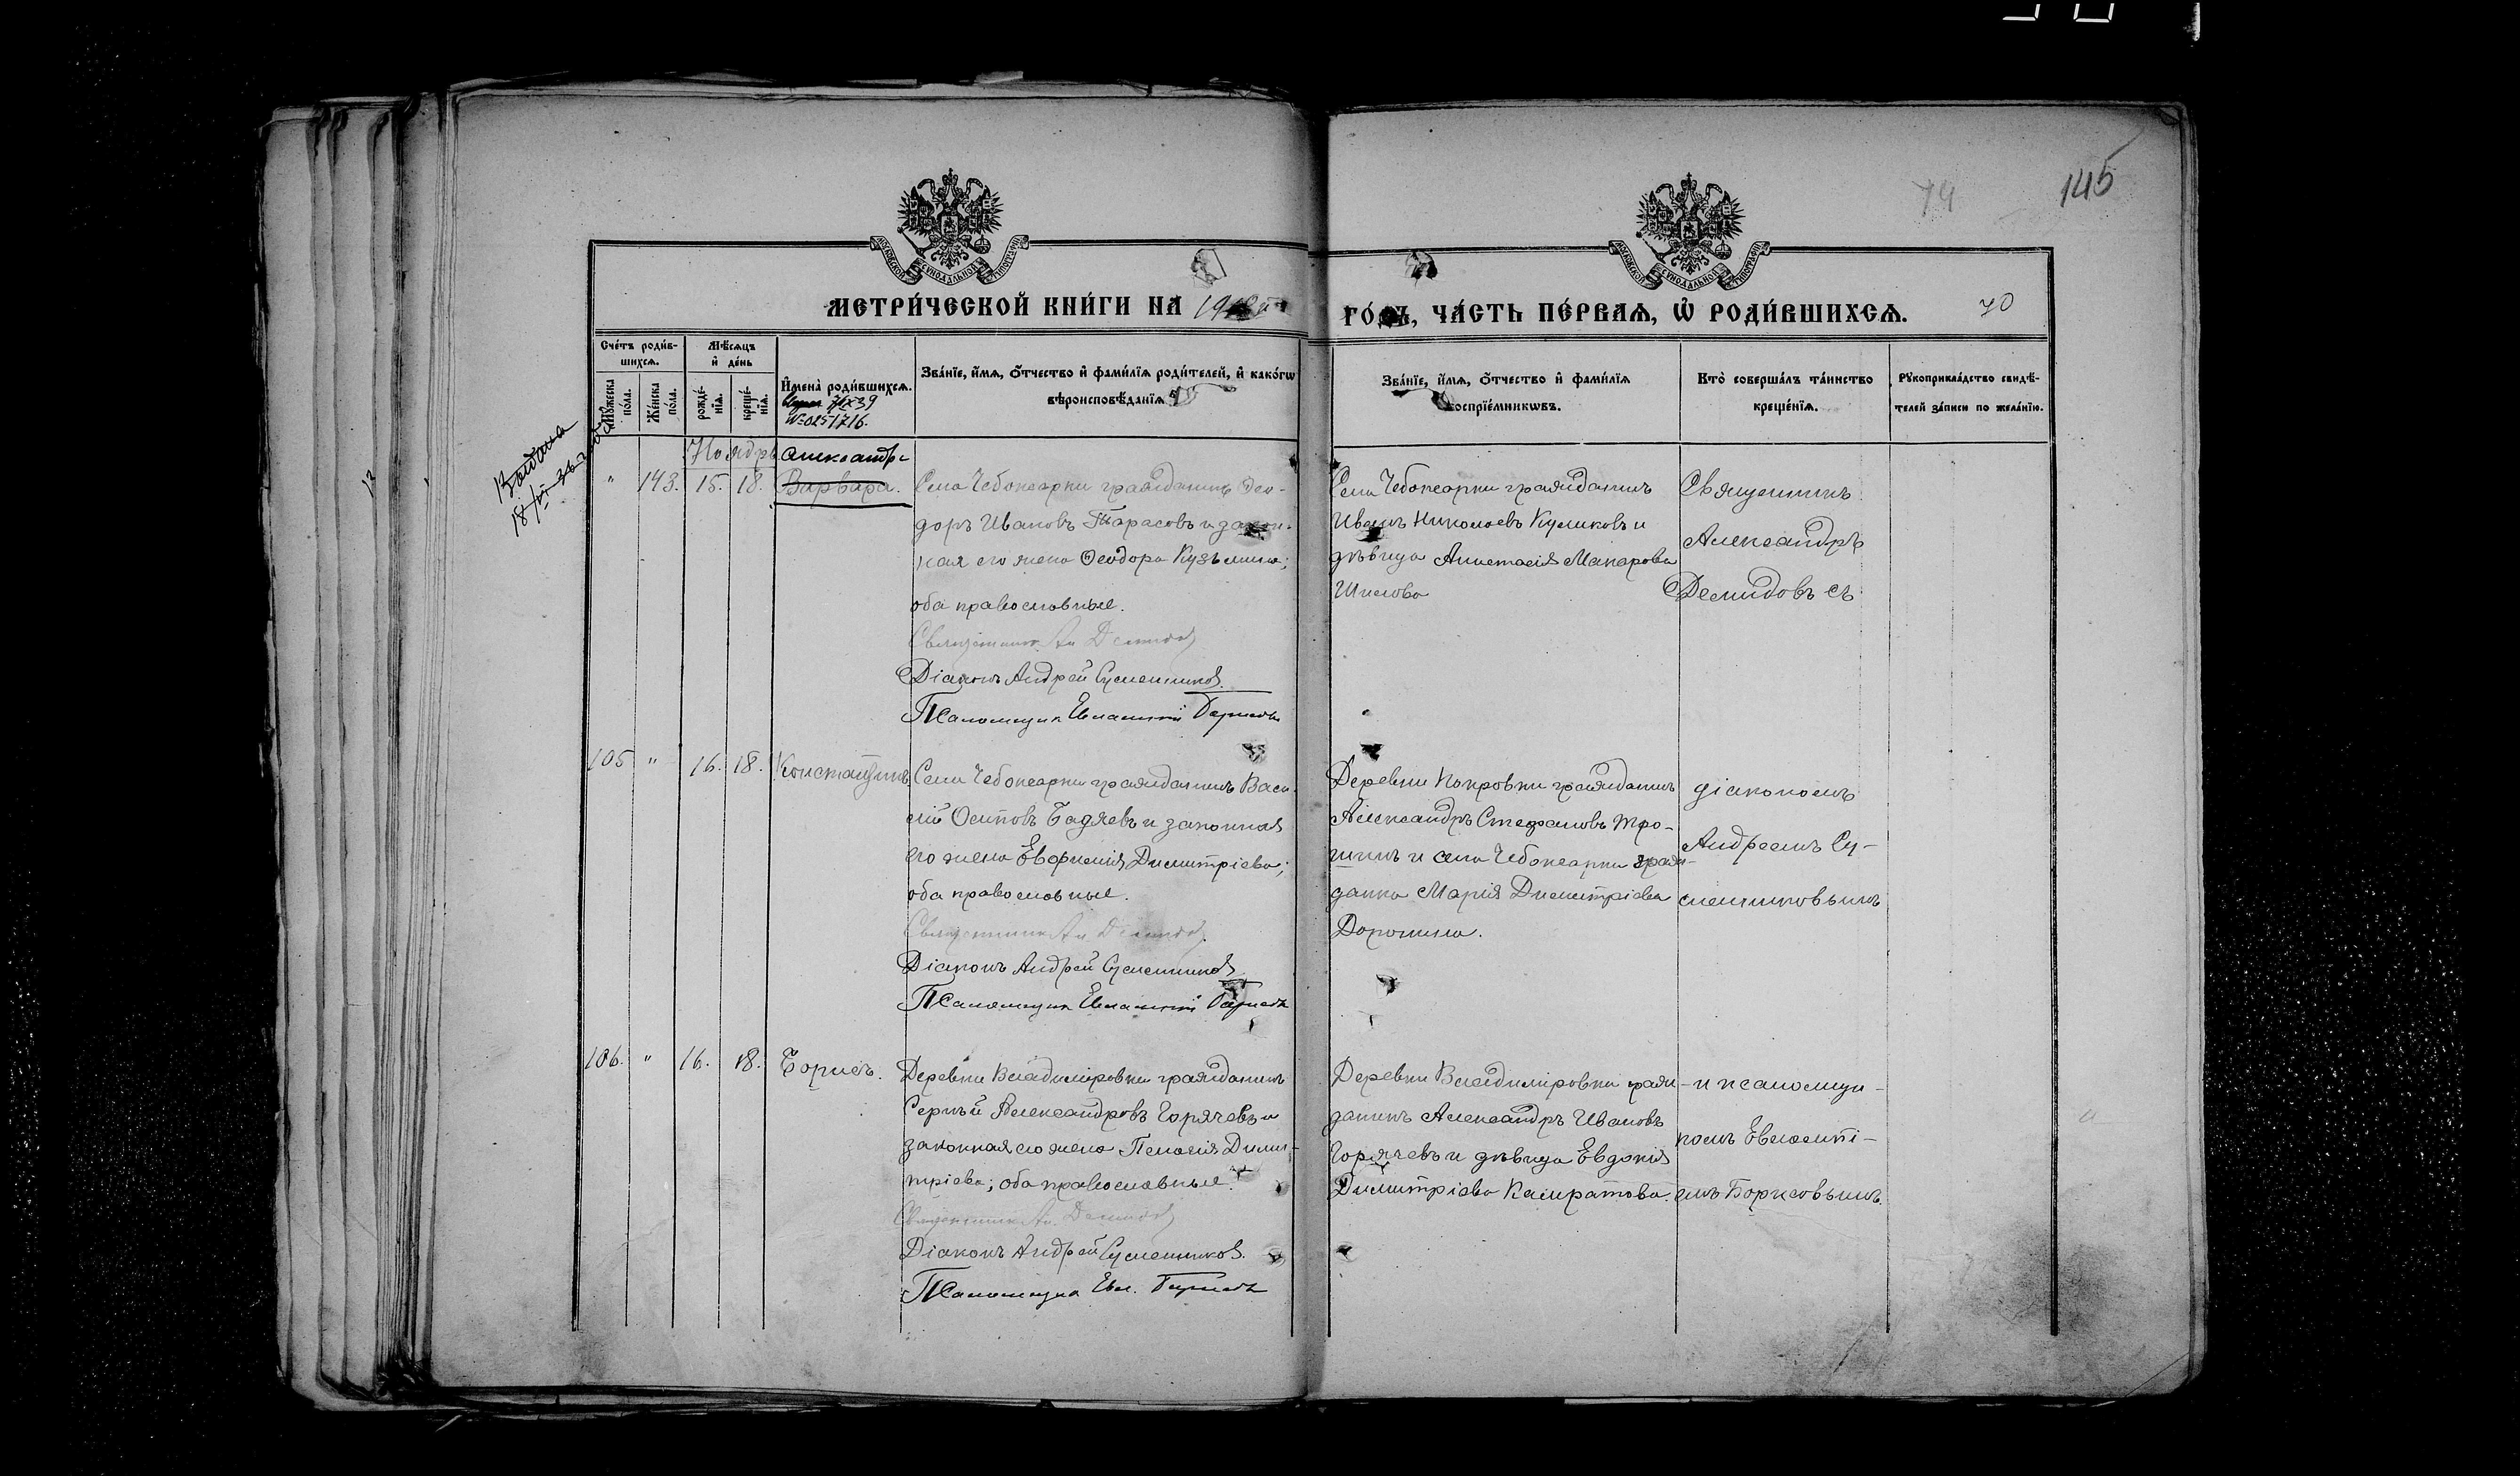 74
145
МОСКОВСКОЙ СѴНОДАЛЬНОЙ ТИПОГРАФІИ
МОСКОВСКОЙ СѴНОДАЛЬНОЙ ТИПОГРАФІИ
МЕТРИ́ЧЕСКОЙ КНИ́ГИ НА 19
ГО́ДЪ, ЧА́СТЬ ПЕ́РВАѦ, Ѡ҆ РОДИ́ВШИХСѦ. 70
Сче́тъ роди́в-
шихсѧ.
Мѣ́сѧцъ
и҆ де́нь
Мꙋ́жеска по́ла.
Же́нска по́ла.
рожде́-нїѧ.
креще́-нїѧ.
И҆мена̀ роди́вшихсѧ.
IX 39
№ 0251716.
Зва́нїе, и҆́мѧ, ѻ҆́тчество и҆ фами́лїѧ роди́телей, и҆ како́гѡ
вѣроисповѣ́данїѧ
Зва́нїе, и҆́мѧ, ѻ҆́тчество и҆ фами́лїѧ
воспрїе́мникѡвъ.
Кто̀ соверша́лъ та́инство
креще́нїѧ.
Рꙋкоприкла́дство свидѣ́-
телей за́писи по жела́нїю.
Выдана
18/VI
Ноябрь
Александр
" 143. 15. 18. Варвара.
Села Чебоксарки гражданинъ Ѳео-
доръ Ивановъ Тарасовъ и закон-
ная его жена Ѳеодора Кузьмина;
оба православные.
Священникъ Ал Демидов
Діаконъ Андрей Сумешников
Псаломщик Евлампій Борисовъ
Села Чебоксарки гражданинъ
Иванъ Николаевъ Куликовъ и
дѣвица Анастасія Макарова
Шилова
Священникъ
Александръ
Демидовъ съ
105 " 16. 18. Константинъ.
Села Чебоксарки гражданинъ Васи-
лій Осиповъ Бадяевъ и законная
его жена Евфимія Димитріева;
оба православные.
Священник Ал Демидов
Діаконъ Андрей Сумешников
Псаломщик Евлампій Борисовъ
Деревни Покровки гражданинъ
Александръ Стефановъ Тро-
шинъ и села Чебоксарки граж-
данка Марія Димитріева
Доронина.
діакономъ
Андреемъ Су-
мешниковымъ
106. " 16. 18. Борисъ.
Деревни Владиміровки гражданинъ
Сергѣй Александровъ Горячевъ и
законная его жена Пелагія Дими-
тріева; оба православные.
Священник Ал. Демидов
Діаконъ Андрей Сумешников.
Псаломщик Евл. Борисовъ
Деревни Владиміровки граж-
данинъ Александръ Ивановъ
Горячевъ и дѣвица Евдокія
Димитріева Камратова.
и псаломщи-
комъ Евлампі-
емъ Борисовымъ.